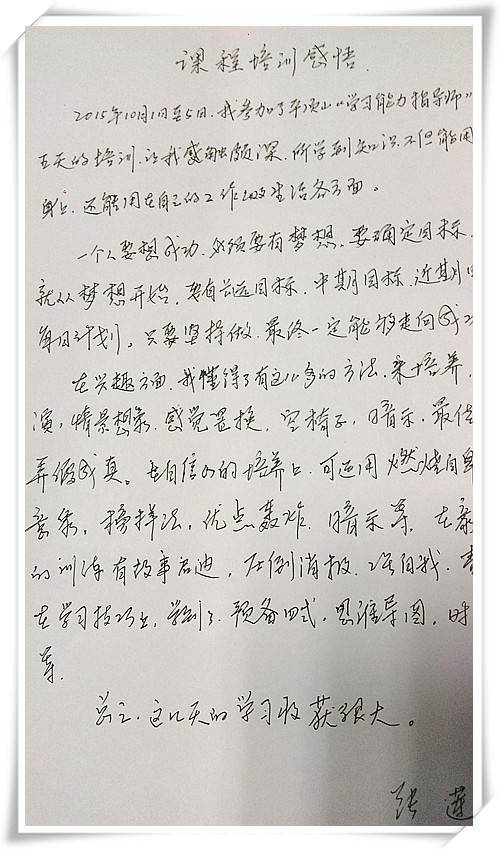 课程培训感悟.
2015年10月1日至5日.我参加了平顶山“学习能力指导师”
五天的培训.让我感触颇深.所学到知识不但能用
身上.还能用在自己的工作以及生活各方面。
一个人要想成功.必须要有梦想.要确定目标.
就从梦想开始.要有长远目标.中期目标.近期
每日计划。只要坚持做.最终一定能够走向成功
在兴趣方面.我懂得了有这么多的方法.来培养,
演,情景想象.感觉置换,空椅子,暗示.最佳
弄假成真。在自信心的培养上.可运用燃烧自卑
意象,榜样法,优点轰炸.暗示等.在
的训练有故事启迪,压倒消极.
在学习技巧上,学到了.预备四式,思维导图,时
等.
总之.这几天的学习收获很大。
张莲